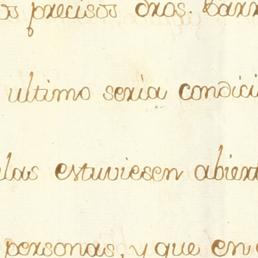 os precisos dros. Barr
ultimo seria condici
las estuviesen abiert
personas, y que en